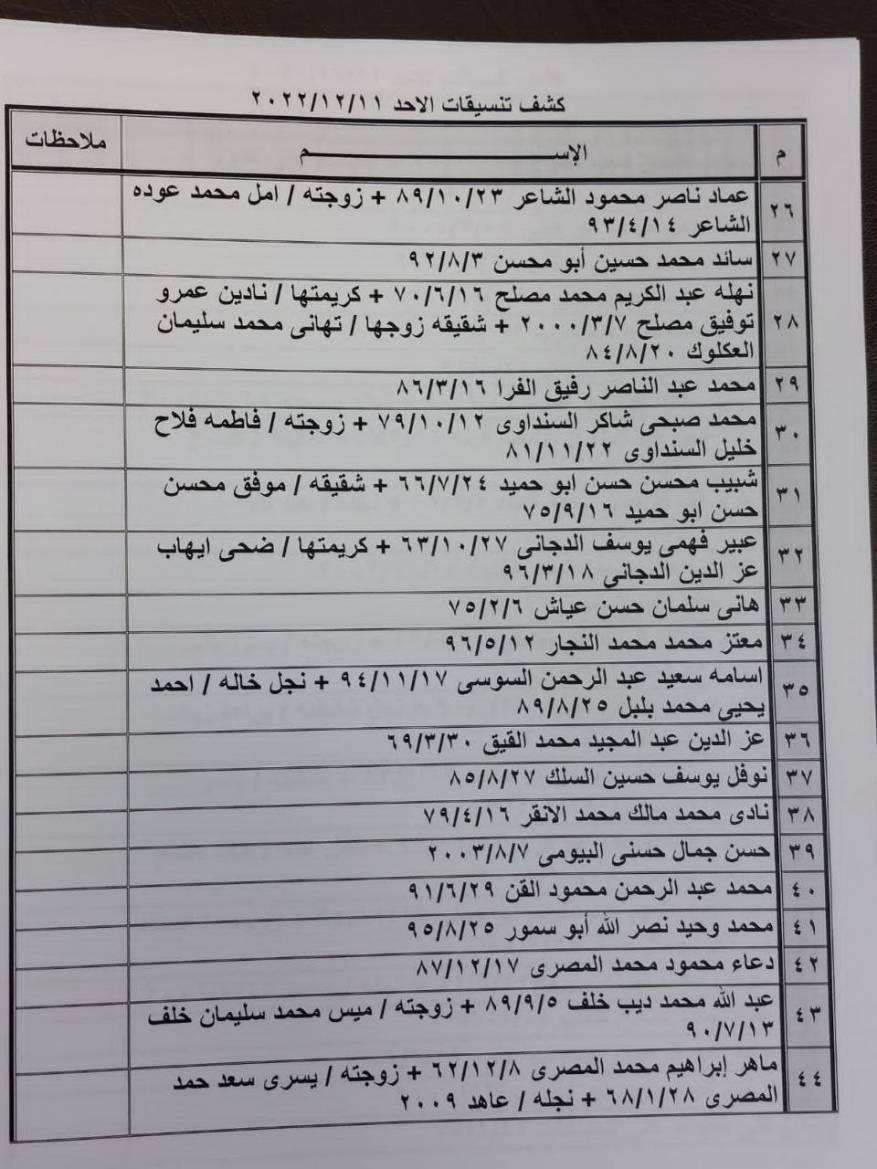 كشف تنسيقات الاحد ٢٠٢٢/١٢/١١
م الإســـــم ملاحظات
٢٦ عماد ناصر محمود الشاعر ٨٩/١٠/٢٣ + زوجته / امل محمد عوده
الشاعر ٩٣/٤/١٤
٢٧ سائد محمد حسين أبو محسن ٩٢/٨/٣
٢٨ نهله عبد الكريم محمد مصلح ٧٠/٦/١٦ + كريمتها / نادين عمرو
توفيق مصلح ٢٠٠٠/٣/٧ + شقيقه زوجها / تهانى محمد سليمان
العكلوك ٨٤/٨/٢٠
٢٩ محمد عبد الناصر رفيق الفرا ٨٦/٣/١٦
٣٠ محمد صبحى شاكر السنداوى ٧٩/١٠/١٢ + زوجته / فاطمه فلاح
خليل السنداوى ٨١/١١/٢٢
٣١ شبيب محسن حسن ابو حميد ٦٦/٧/٢٤ + شقيقه / موفق محسن
حسن ابو حميد ٧٥/٩/١٦
٣٢ عبير فهمى يوسف الدجانى ٦٣/١٠/٢٧ + كريمتها / ضحى ايهاب
عز الدين الدجانى ٩٦/٣/١٨
٣٣ هانى سلمان حسن عياش ٧٥/٢/٦
٣٤ معتز محمد محمد النجار ٩٦/٥/١٢
٣٥ اسامه سعيد عبد الرحمن السوسى ٩٤/١١/١٧ + نجل خاله / احمد
يحيى محمد بلبل ٨٩/٨/٢٥
٣٦ عز الدين عبد المجيد محمد القيق ٦٩/٣/٣٠
٣٧ نوفل يوسف حسين السلك ٨٥/٨/٢٧
٣٨ نادى محمد مالك محمد الانقر ٧٩/٤/١٦
٣٩ حسن جمال حسنى البيومى ٢٠٠٣/٨/٧
٤٠ محمد عبد الرحمن محمود القن ٩١/٦/٢٩
٤١ محمد وحيد نصر الله أبو سمور ٩٥/٨/٢٥
٤٢ دعاء محمود محمد المصرى ٨٧/١٢/١٧
٤٣ عبد الله محمد ديب خلف ٨٩/٩/٥ + زوجته / ميس محمد سليمان خلف
٩٠/٧/١٣
٤٤ ماهر إبراهيم محمد المصرى ٦٢/١٢/٨ + زوجته / يسرى سعد حمد
المصرى ٦٨/١/٢٨ + نجله / عاهد ٢٠٠٩